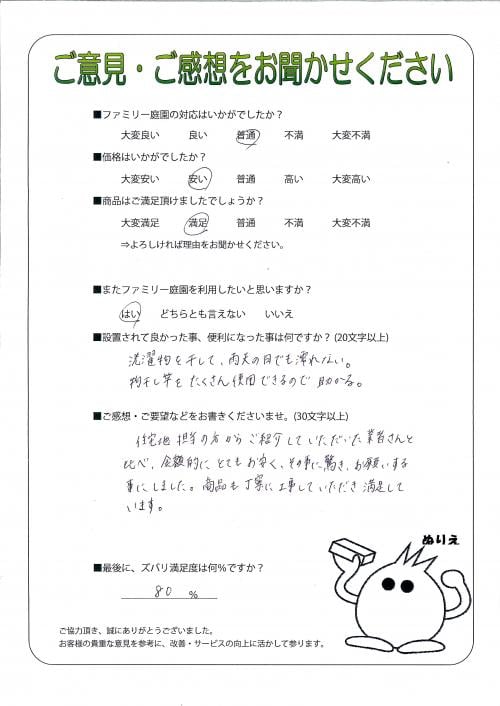 ご意見・ご感想をお聞かせください
■ファミリー庭園の対応はいかがでしたか？
大変良い 良い 普通 不満 大変不満
■価格はいかがでしたか？
大変安い 安い 普通 高い 大変高い
■商品はご満足頂けましたでしょうか？
大変満足 満足 普通 不満 大変不満
⇒よろしければ理由をお聞かせください。
■またファミリー庭園を利用したいと思いますか？
はい どちらとも言えない いいえ
■設置されて良かった事、便利になった事は何ですか？(20文字以上)
洗濯物を干して、雨天の日でも濡れない。
物干し竿をたくさん使用できるので助かる。
■ご感想・ご要望などをお書きくださいませ。(30文字以上)
住宅地担当の方からご紹介していただいた業者さんと
比べ、金額的にとてもお安く、その事に驚き、お願いする
事にしました。商品も丁寧に工事していただき満足して
います。
ぬりえ
■最後に、ズバリ満足度は何%ですか？
80 %
ご協力頂き、誠にありがとうございました。
お客様の貴重な意見を参考に、改善・サービスの向上に活かして参ります。